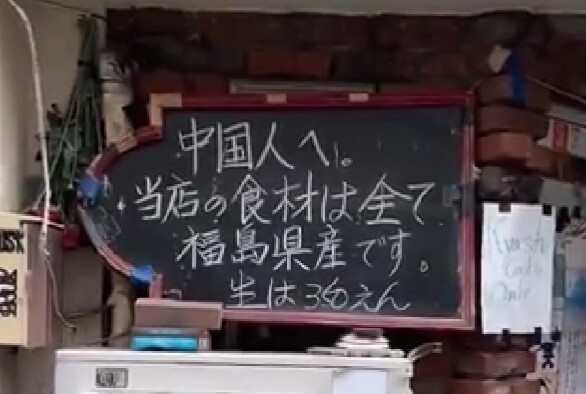 中国人へ。
当店の食材は全て
福島県産です。
生は360えん
only